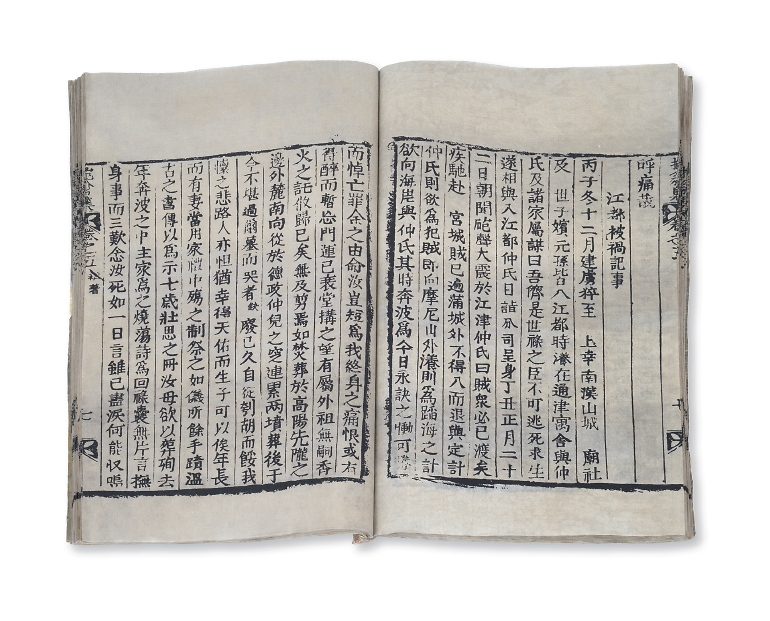 呼痛哉
江都被禍記事
丙子冬十二月建虜猝至 上幸南漢山城 廟社
及 世子嬪元孫皆入江都時濬在通津寓舍與仲
氏及諸家屬謀曰吾儕是世祿之臣不可逃死求生
遂相與入江都仲氏日詣分司呈身丁丑正月二十
二日朝聞砲聲大震於江津仲氏曰賊衆必已渡矣
疾馳赴 宮城賊已遍滿城外不得入而退與定計
仲氏則欲爲犯賊卽向摩尼山外濬則爲蹈海之計
欲向海岸與仲氏其時奔波爲今日永訣之慟可
而悼亡罪余之由兪汝豈短爲我終身之痛恨或有
得醉而暫忘門蓮已表堂構之望有屬外祖無嗣香
火之託攸歸已矣無及剪焉如焚葬於高陽先隴之
邊外麓南向從於德政仲兒之穸連累兩墳葬後于
今不堪過扇墓而哭者 廢已久自從匍匐而餒我
懷之悲路人亦怛猶幸得天佑而生子可以俟年長
而有妻當用家 中殤之制祭之如儀所餘手蹟溫
古之書傳以爲示七歲壯思之冊汝母欲以葬殉去
年奔波之中主家爲之燒蕩詩爲回祿囊無片言撫
身事而三歎念汝死如一日言雖已盡淚何能收嗚
雜著
七